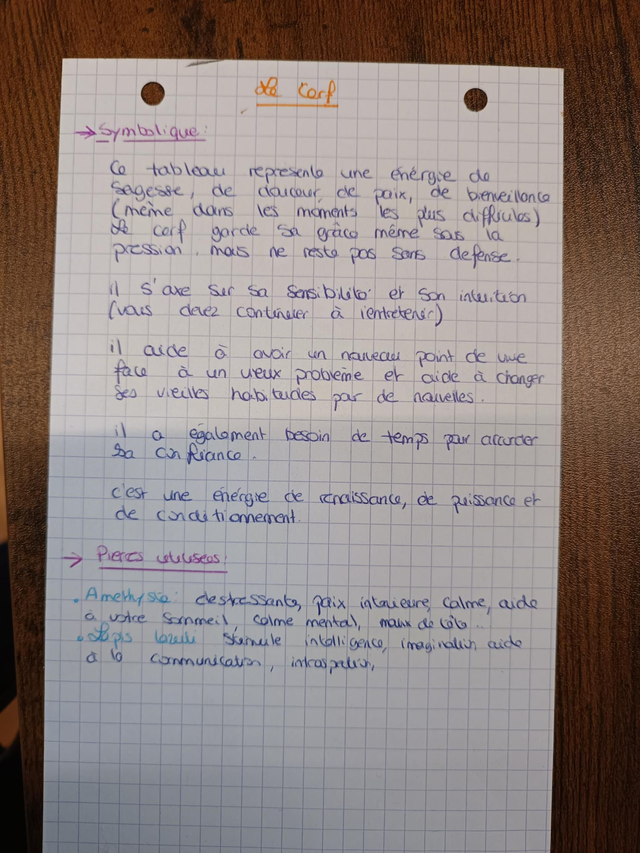 Le cerf
→ Symbolique:
Ce tableau represente une énergie de
sagesse, de douceur, de paix, de bienveillance
(même dans les moments les plus difficiles)
Le cerf garde sa grâce même sous la
pression, mais ne reste pas sans defense.
il s'axe sur sa sensibilité et son intuition
(vous devez continuer à l'entretenir)
il aide à avoir un nouveau point de vue
face à un vieux problème et aide à changer
ses vieilles habitudes par de nouvelles.
il a également besoin de temps pour accorder
sa confiance.
c'est une énergie de renaissance, de puissance et
de conditionnement.
→ Pierres utilisées:
• Amethyste: destressante, paix intérieure, calme, aide
à votre sommeil, calme mental, maux de tête..
• Lapis lazuli stimule intelligence, imagination aide
à la communication, introspection,